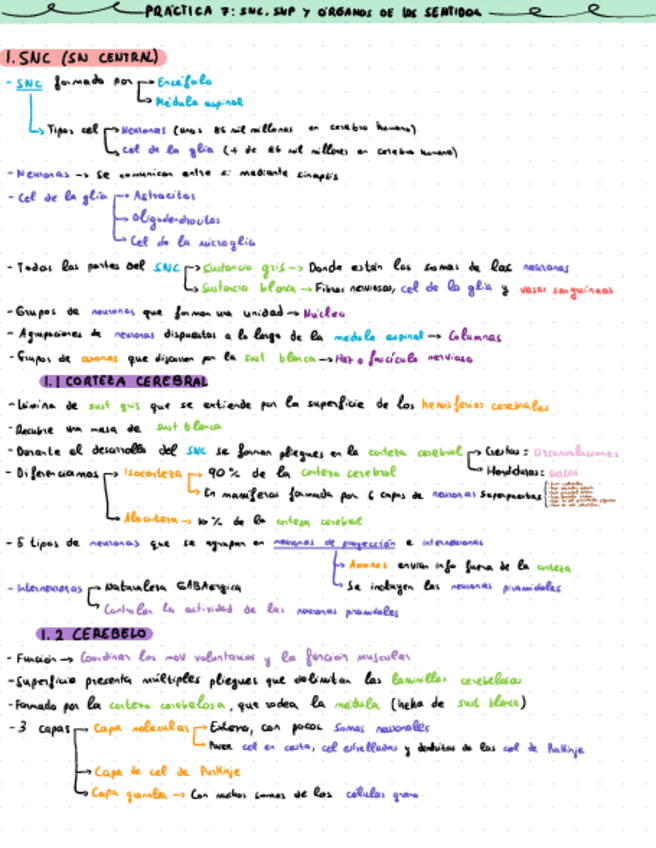 PRÁCTICA 7: SNC, SNP Y ÓRGANOS DE LOS SENTIDOS
1. SNC (SN CENTRAL)
- SNC formado por → Encéfalo
→ Médula espinal
→ Tipos cel → Neuronas (unas 86 mil millones en cerebro humano)
→ Cel de la glía (+ de 86 mil millones en cerebro humano)
- Neuronas → Se comunican entre sí mediante sinapsis
- Cel de la glía → Astrocitos
→ Oligodendrocitos
→ Cel de la microglía
- Todas las partes del SNC → Sustancia gris → Donde están los somas de las neuronas
→ Sustancia blanca → Fibras nerviosas, cel de la glía y vasos sanguíneos
- Grupos de neuronas que forman una unidad → Núcleo
- Agrupaciones de neuronas dispuestas a lo largo de la médula espinal → Columnas
- Grupos de axones que discurren por la sust blanca → Haz o fascículo nervioso
1.1 CORTEZA CEREBRAL
- Lámina de sust gris que se extiende por la superficie de los hemisferios cerebrales
- Recubre una masa de sust blanca
- Durante el desarrollo del SNC se forman pliegues en la corteza cerebral → Crestas = Circunvoluciones
→ Hendiduras = surcos
- Diferenciamos → Isocorteza → 90% de la corteza cerebral
→ En mamíferos formada por 6 capas de neuronas superpuestas
→ Alocorteza → 10% de la corteza cerebral
- 5 tipos de neuronas que se agrupan en neuronas de proyección e interneuronas
→ Axones envían info fuera de la corteza
→ Se incluyen las neuronas piramidales
- Interneuronas → Naturaleza GABAérgica
→ Controlan la actividad de las neuronas piramidales
1.2 CEREBELO
- Función → Coordinar los mov voluntarios y la función muscular
- Superficie presenta múltiples pliegues que delimitan las laminillas cerebelosas
- Formado por la corteza cerebelosa, que rodea la médula (hecha de sust blanca)
- 3 capas → Capa molecular → Externa, con pocos somas neuronales
→ Posee cel en cesta, cel estrelladas y dendritas de las cel de Purkinje
→ Capa de cel de Purkinje
→ Capa granular → Con muchos somas de las células grano